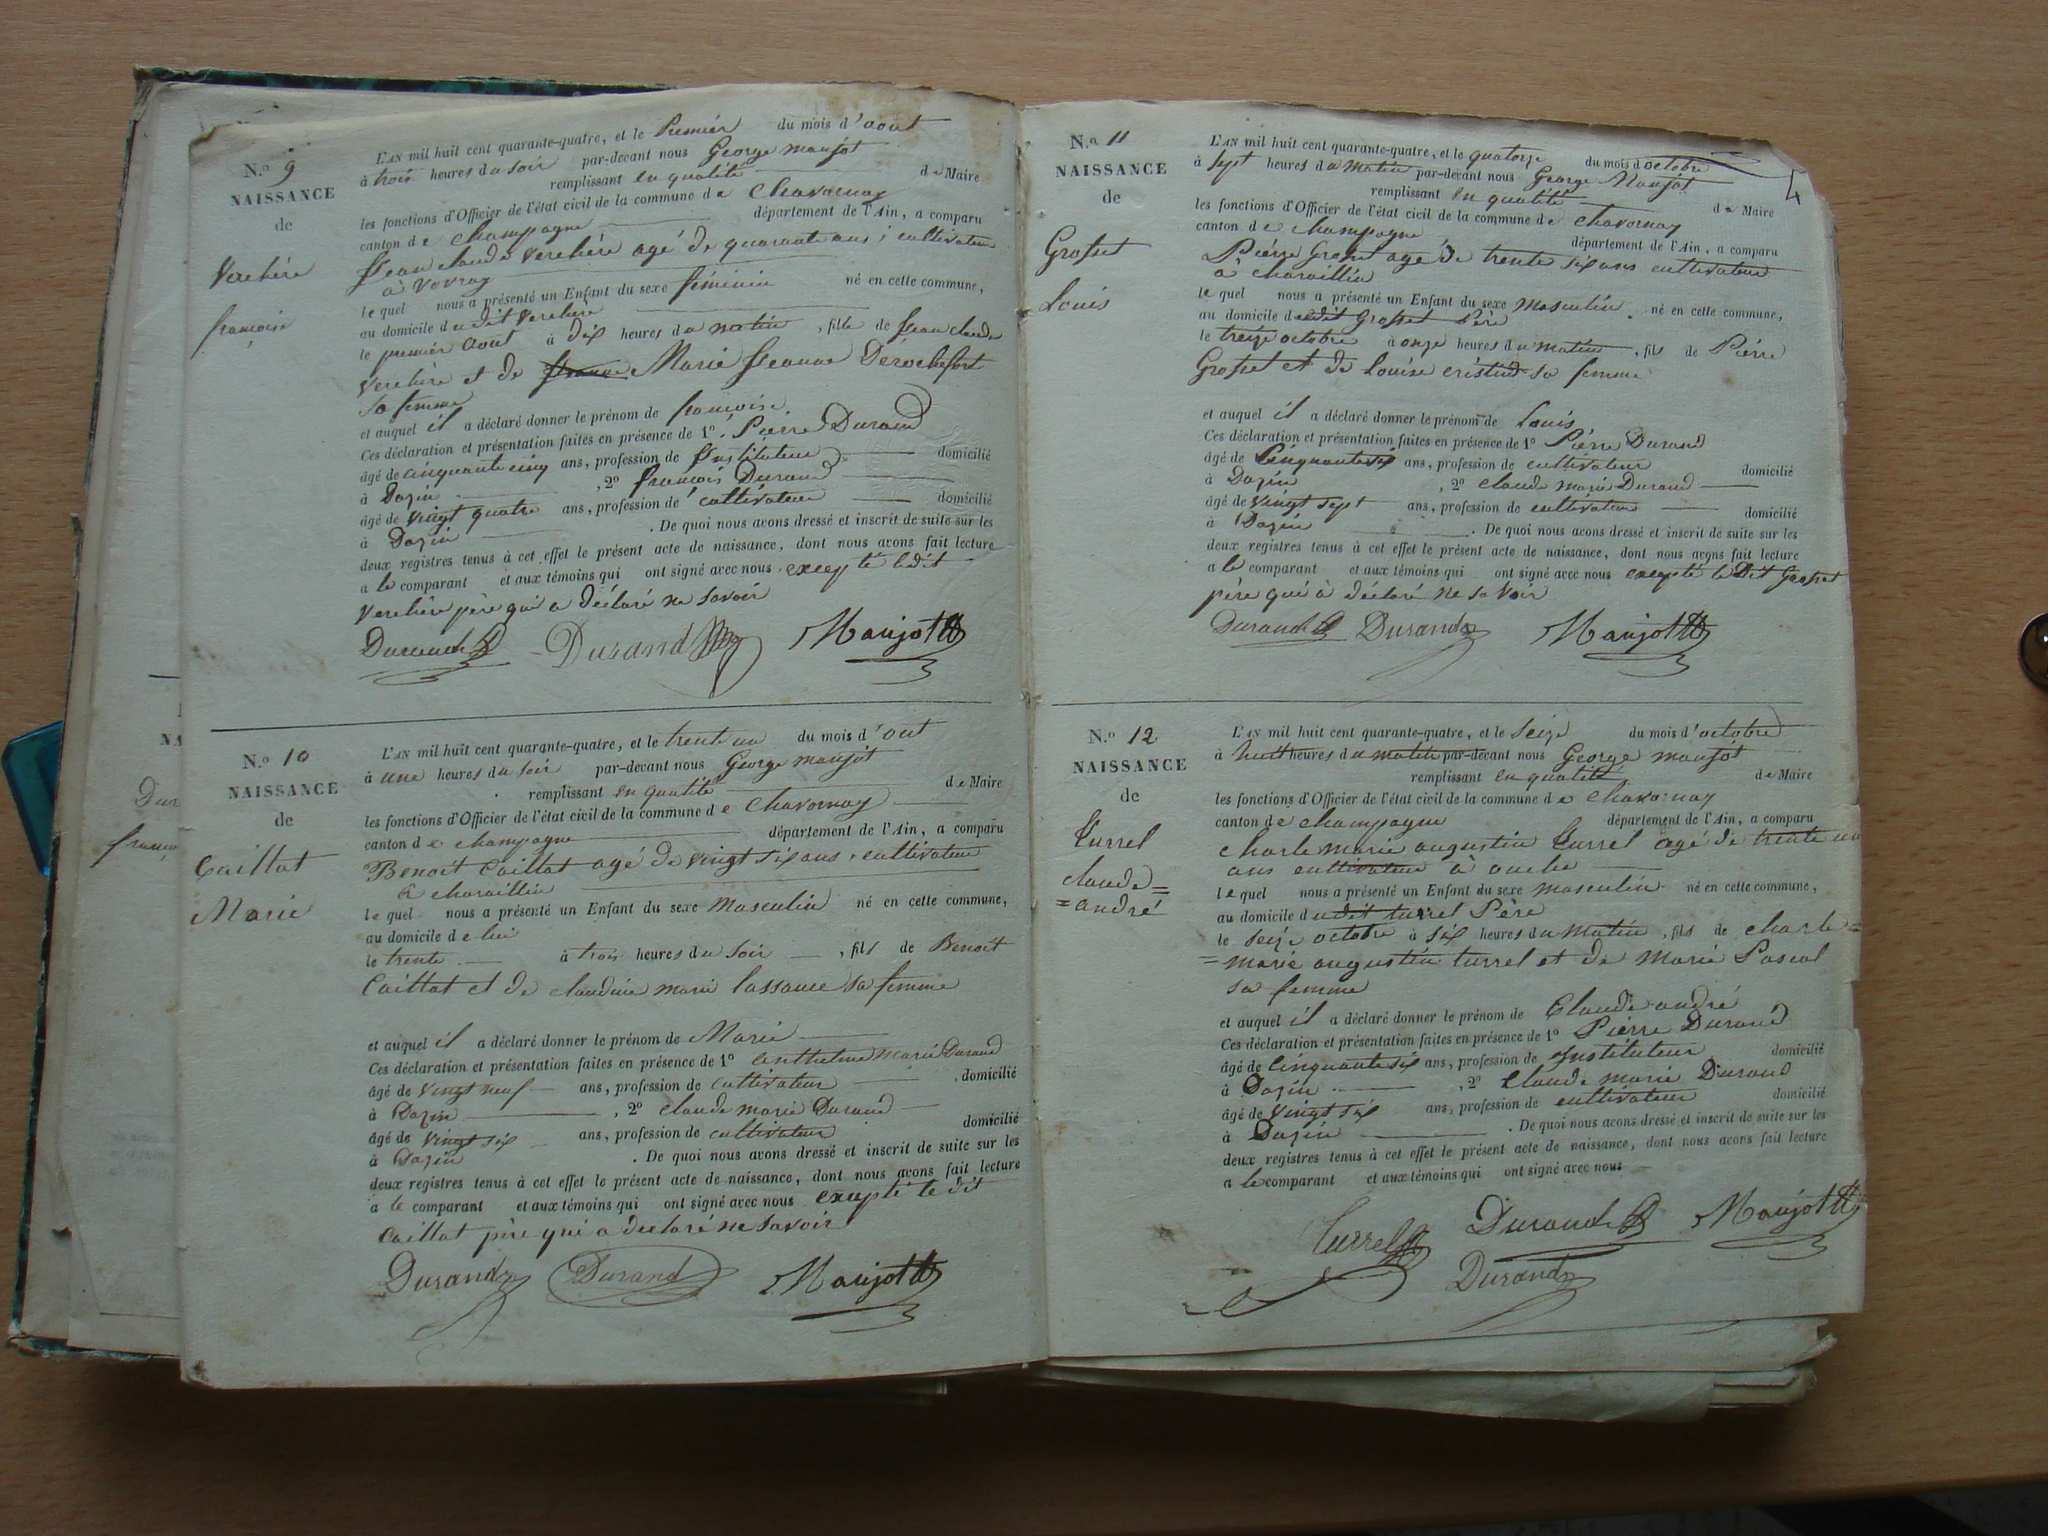 N.o 9
NAISSANCE
de
Verchère
françoise
L'AN mil huit cent quarante-quatre, et le Premier du mois d'aout
à trois heures du soir par-devant nous George maujot
remplissant en qualité de Maire
les fonctions d'Officier de l'état civil de la commune de Chavornay
canton de Champagne département de l'Ain, a comparu
Jean claude Verchère agé de quarante ans, cultivateur
à Vovray
lequel nous a présenté un Enfant du sexe féminin né en cette commune,
au domicile dudit Verchère
le premier aout à dix heures du matin, fille de Jean claude
Verchère et de Marie Jeanne Derochefort
sa femme
et auquel il a déclaré donner le prénom de françoise.
Ces déclaration et présentation faites en présence de 1o. Pierre Durand
âgé de cinquante cinq ans, profession de Instituteur domicilié
à Dazin, 2o françois Durand
âgé de vingt quatre ans, profession de cultivateur domicilié
à Dazin. De quoi nous avons dressé et inscrit de suite sur les
deux registres tenus à cet effet le présent acte de naissance, dont nous avons fait lecture
a le comparant et aux témoins qui ont signé avec nous excepté ledit
Verchère père qui a déclaré ne savoir
Durand Durand Maujot
N.o 10
NAISSANCE
de
Caillat
Marie
L'AN mil huit cent quarante-quatre, et le trente un du mois d'out
à une heures du soir par-devant nous George maujot
remplissant en qualité de Maire
les fonctions d'Officier de l'état civil de la commune de Chavornay
canton de champagne département de l'Ain, a comparu
Benoit Caillat agé de vingt six ans, cultivateur
à charaillin
lequel nous a présenté un Enfant du sexe Masculin né en cette commune,
au domicile de lui
le trente à trois heures du soir, fils de Benoit
Caillat et de claudine marie lassauce sa femme
et auquel il a déclaré donner le prénom de Marie
Ces déclaration et présentation faites en présence de 1o Marie Durand
âgé de vingt neuf ans, profession de cultivateur domicilié
à Dazin, 2o claude marie Durand
âgé de vingt six ans, profession de cultivateur domicilié
à Dazin. De quoi nous avons dressé et inscrit de suite sur les
deux registres tenus à cet effet le présent acte de naissance, dont nous avons fait lecture
a le comparant et aux témoins qui ont signé avec nous excepté le dit
Caillat père qui a declaré ne savoir
Durand Durand Maujot
4
N.o 11
NAISSANCE
de
Grosset
Louis
L'AN mil huit cent quarante-quatre, et le quatorze du mois d octobre
à sept heures du matin par-devant nous George Maujot
remplissant en qualité de Maire
les fonctions d'Officier de l'état civil de la commune de Chavornay
canton de champagne département de l'Ain, a comparu
Pierre Grosset agé de trente six ans cultivateur
à charaillin
lequel nous a présenté un Enfant du sexe masculin né en cette commune,
au domicile dudit Grosset Père
le treize octobre à onze heures du matin, fils de Pierre
Grosset et de Louise cristin sa femme
et auquel il a déclaré donner le prénom de Louis
Ces déclaration et présentation faites en présence de 1o Pierre Durand
âgé de Cinquante six ans, profession de cultivateur domicilié
à Dazin, 2o claude marie Durand
âgé de vingt sept ans, profession de cultivateur domicilié
à Dazin. De quoi nous avons dressé et inscrit de suite sur les
deux registres tenus à cet effet le présent acte de naissance, dont nous avons fait lecture
a le comparant et aux témoins qui ont signé avec nous excepté le Dit Grosset
père qui à déclaré ne savoir
Durand Durand Maujot
N.o 12
NAISSANCE
de
Turrel
claude=
=andré
L'AN mil huit cent quarante-quatre, et le seize du mois d'octobre
à huit heures du matin par-devant nous George maujot
remplissant en qualité de Maire
les fonctions d'Officier de l'état civil de la commune de Chavornay
canton de champagne département de l'Ain, a comparu
charle marie augustin Turrel agé de trente un
ans cultivateur à ouche
lequel nous a présenté un Enfant du sexe masculin né en cette commune,
au domicile dudit turrel Père
le seize octobre à six heures du matin, fils de charle=
=marie augustin turrel et de marie Pascal
sa femme
et auquel il a déclaré donner le prénom de Claude andré
Ces déclaration et présentation faites en présence de 1o Pierre Durand
âgé de Cinquante six ans, profession de Instituteur domicilié
à Dazin, 2o Claude marie Durand
âgé de vingt six ans, profession de cultivateur domicilié
à Dazin. De quoi nous avons dressé et inscrit de suite sur les
deux registres tenus à cet effet le présent acte de naissance, dont nous avons fait lecture
a le comparant et aux témoins qui ont signé avec nous
Turrel Durand Maujot
Durand